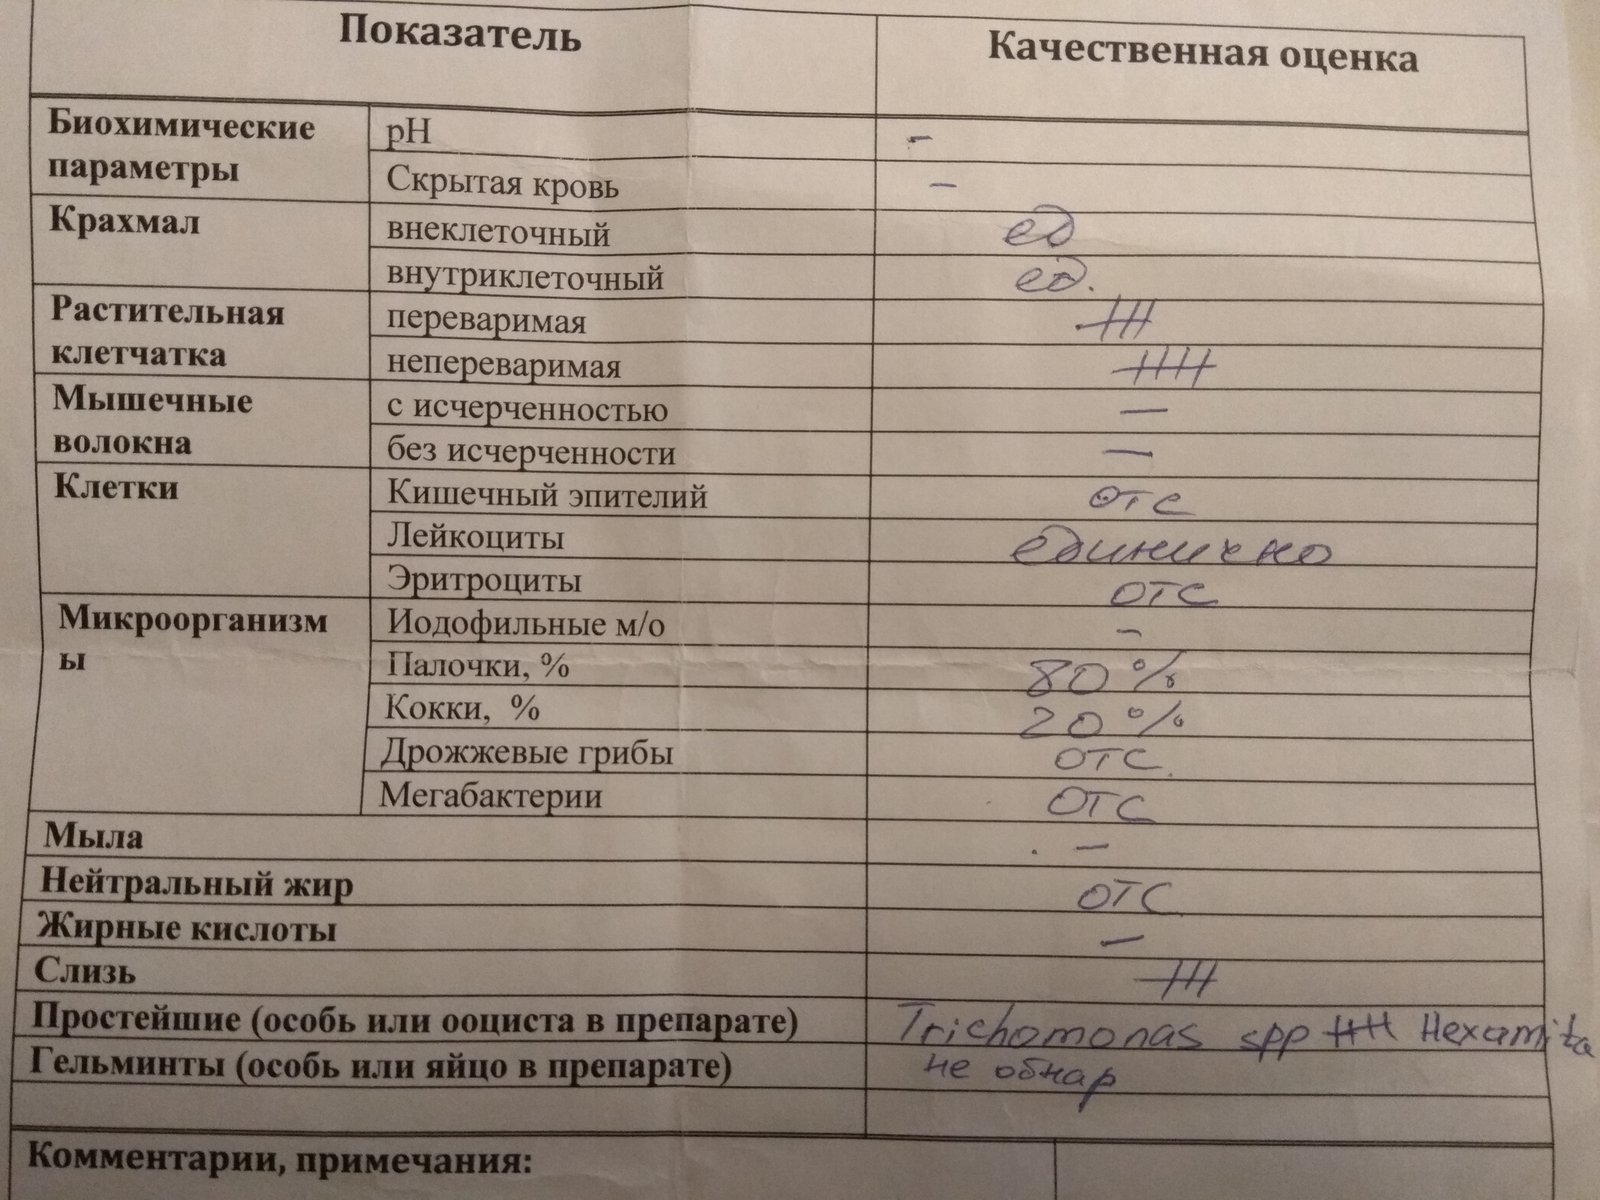 Показатель Качественная оценка
Биохимические параметры pH -
Скрытая кровь -
Крахмал внеклеточный ед
внутриклеточный ед.
Растительная клетчатка переваримая +++
непереваримая ++++
Мышечные волокна с исчерченностью -
без исчерченности -
Клетки Кишечный эпителий отс
Лейкоциты единично
Эритроциты отс
Микроорганизм
ы Иодофильные м/о -
Палочки, % 80 %
Кокки, % 20 %
Дрожжевые грибы отс.
Мегабактерии отс
Мыла -
Нейтральный жир отс
Жирные кислоты -
Слизь +++
Простейшие (особь или ооциста в препарате) Trichomonas spp ++++ Hexamita
Гельминты (особь или яйцо в препарате) не обнар
Комментарии, примечания: